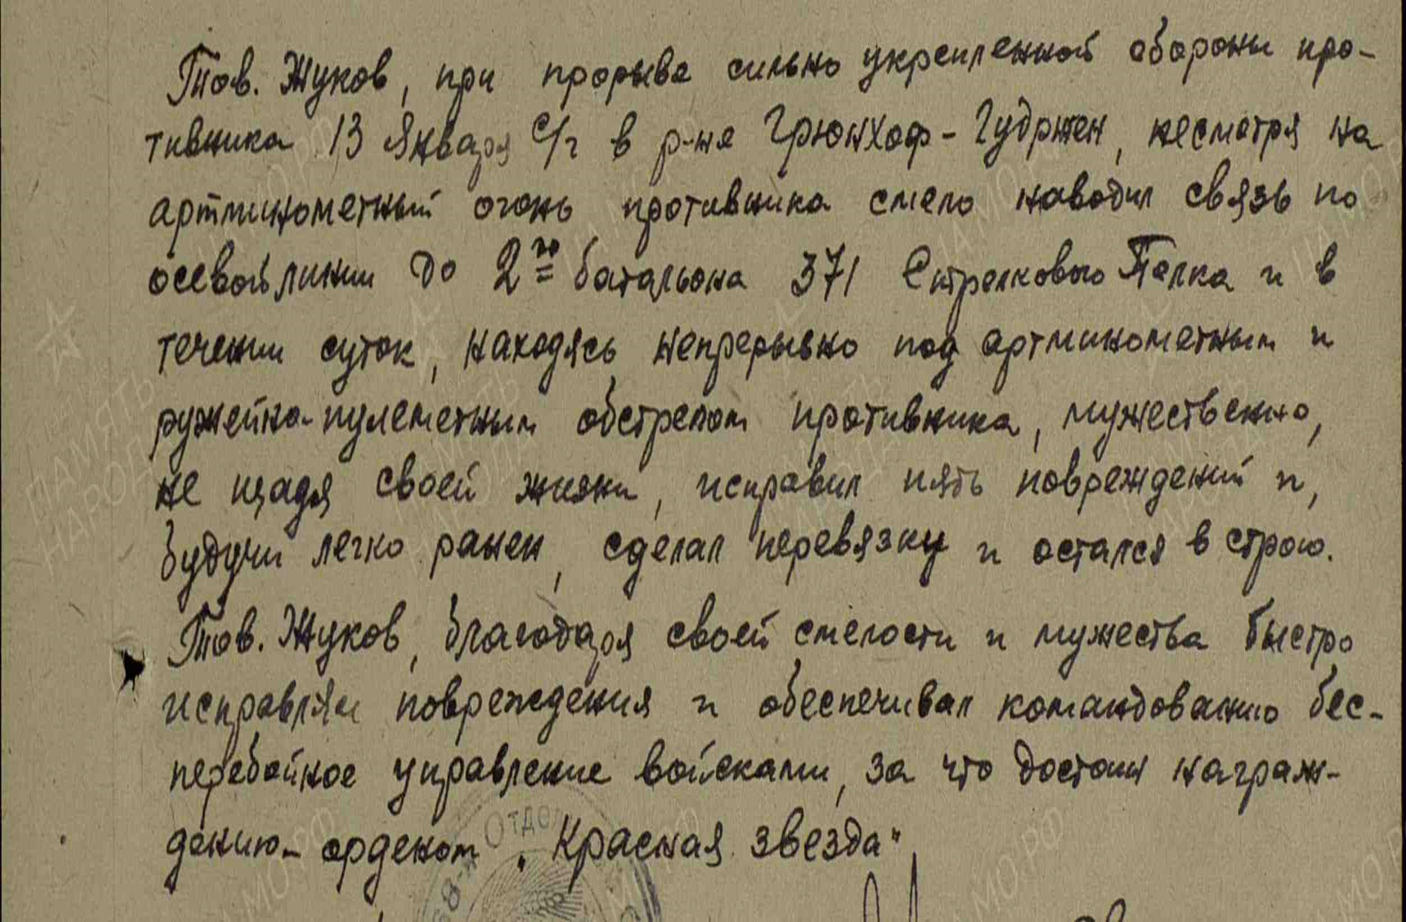 Тов. Жуков, при прорыве сильно укрепленной обороны про-
тивника 13 Января с/г в р-не Грюнхоф-Гудржен, несмотря на
артминометный огонь противника смело наводил связь по
осевой линии до 2го батальона 371 Стрелкового Полка и в
течении суток, находясь непрерывно под артминометным и
ружейно-пулеметным обстрелом противника, мужественно,
не щадя своей жизни, исправил пять повреждений и,
будучи легко ранен, сделал перевязку и остался в строю.
Тов. Жуков, благодаря своей смелости и мужества быстро
исправлял повреждения и обеспечивал командованию бес-
перебойное управление войсками, за что достоин награж-
дению- орденом "Красная звезда"
ОТДЕЛ
ПАМЯТЬ
НАРОДА